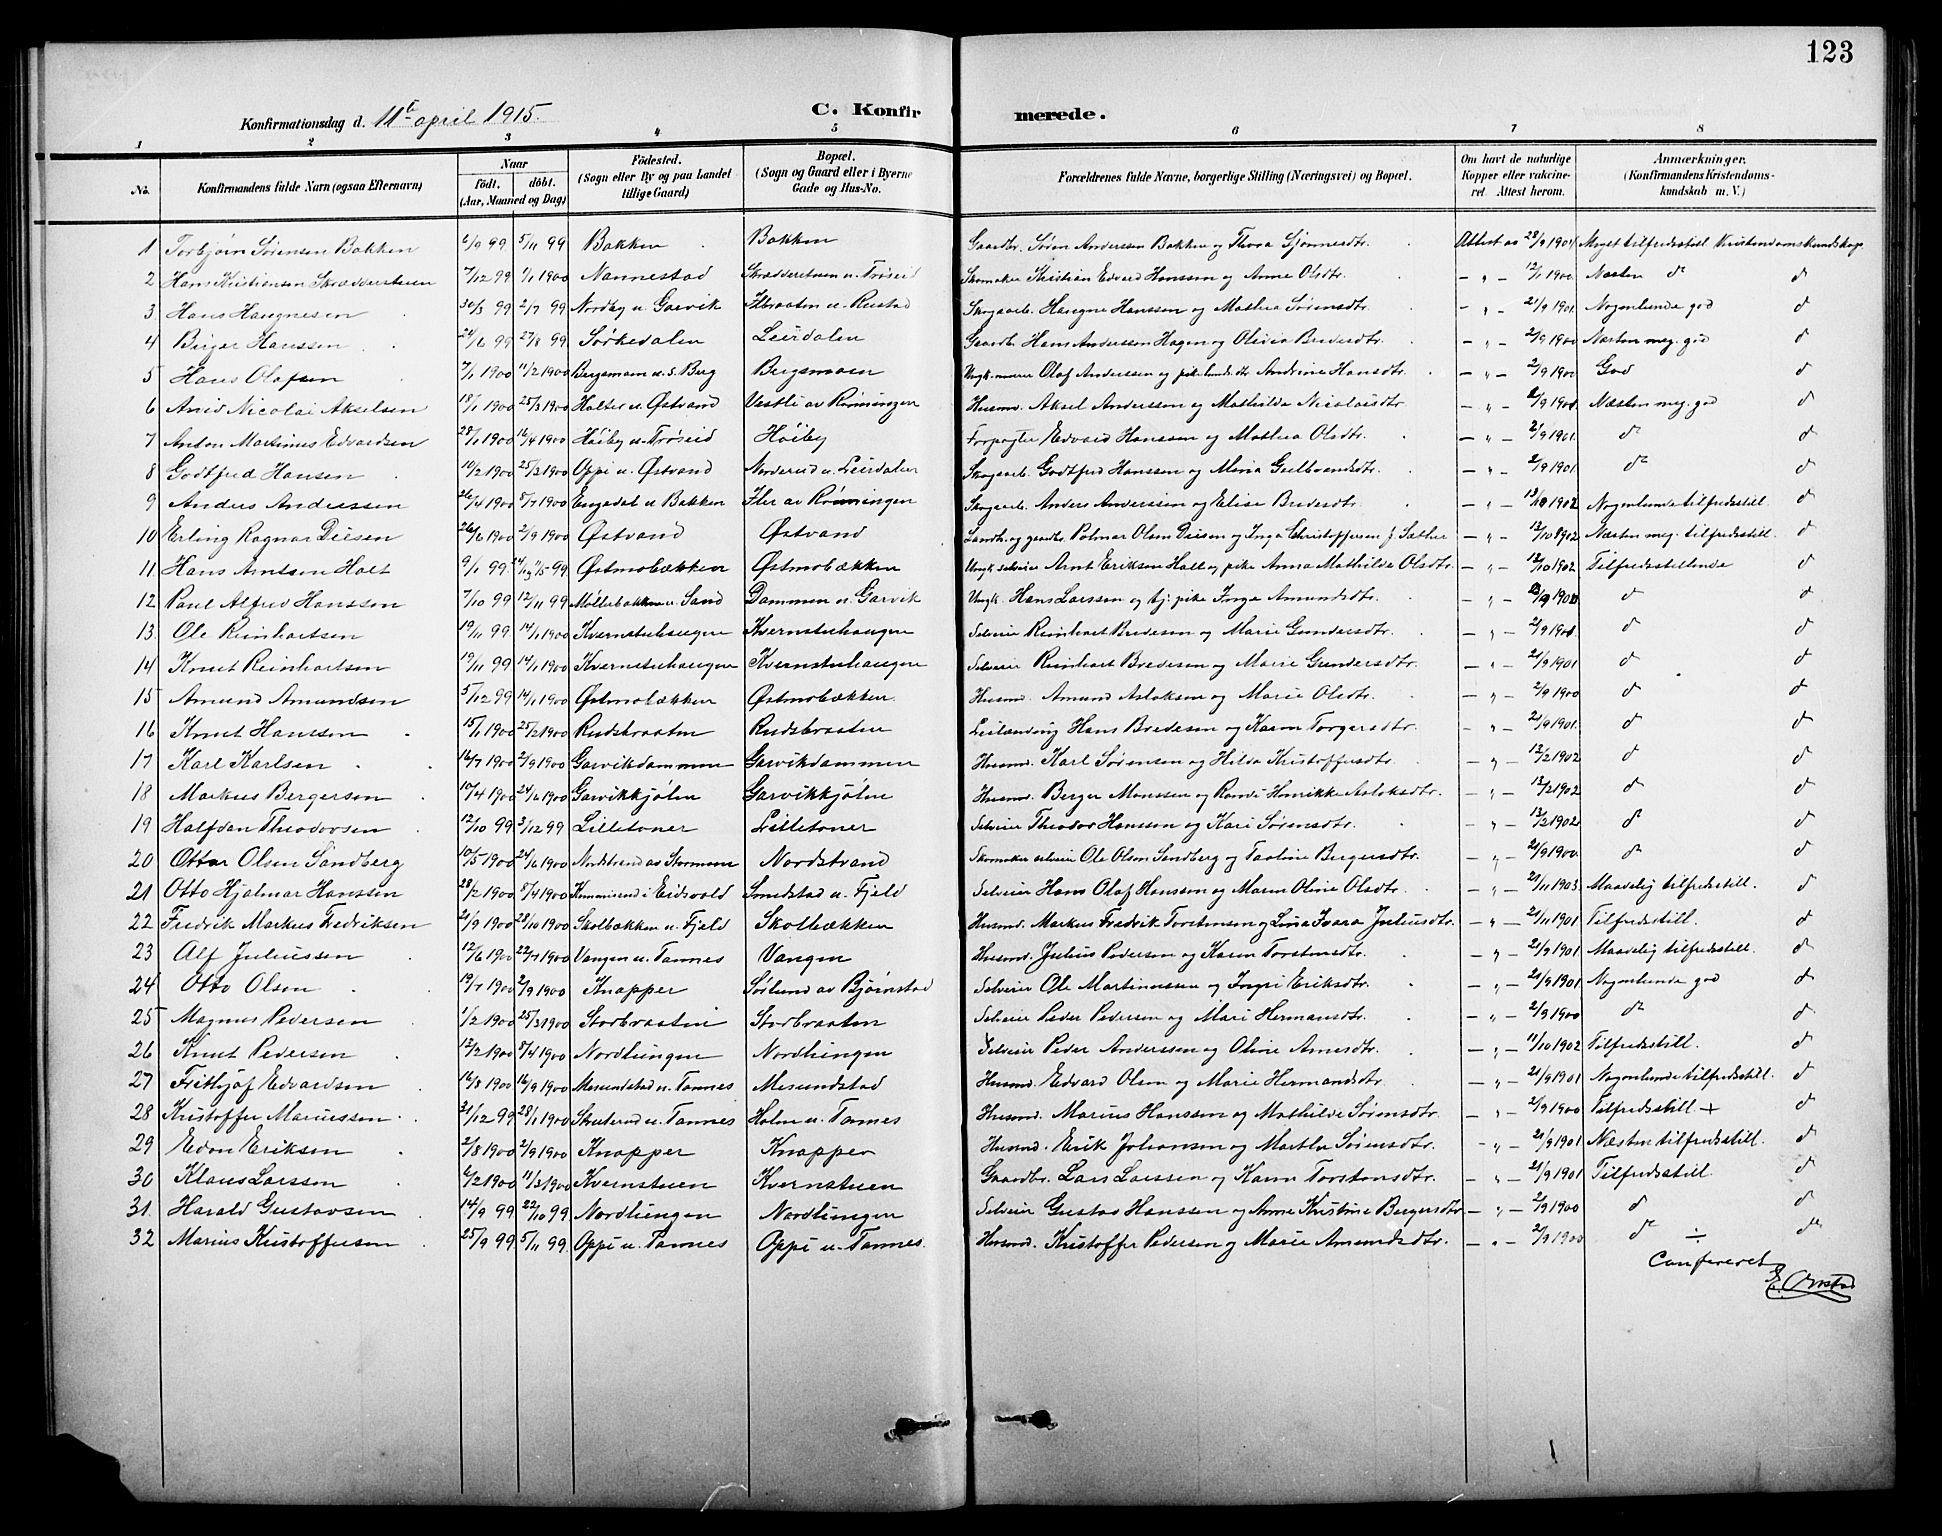 123
Konfirmationsdag d. 11te april 1915. C. Konfirmerede.
1 2 3 4 5 6 7 8
No. Konfirmandens fulde Navn (ogsaa Efternavn) Naar født. døbt. (Aar, Maaned og Dag) Fødested. (Sogn eller By og paa Landet tillige Gaard) Bopæl. (Sogn og Gaard eller i Byerne Gade og Hus-No. Forældrenes fulde Navne, borgerlige Stilling (Næringsvei) og Bopæl. Om havt de naturlige Kopper eller vaccineret Attest herom. Anmærkninger. (Konfirmandens Kristendomskundskab m. V.)
1 Torbjørn Sørensen Bakken 6/9 99 5/11 99 Bakken Bakken Gaardbr. Søren Anderssen Bakken og Thora Attest av 28/9 1901 Meget tilfredsstill Kristendomskundskap
2 Hans Kristiansen Skrædderstuen 7/12 99 1/1 1900 Nannestad Skrædderstuen u. Trøseid Skomaker Kristian Edvard Hanssen og Anne Olsdtr. - " - 12/1 1900 Næsten do do
3 Hans Haugnesen 30/3 99 2/7 99 Nordby u. Garvik Ilbraaten u. Rustad Skogsarb. Haugne Hanssen og Mathea Sørensdtr. - " - 21/9 1901 Nogenlunde god do
4 Birger Hanssen 24/6 99 27/8 99 Sørkedalen Leirdalen Gaardb. Hans Anderssen Hagen og Olivia Bredesdtr. - " - 2/9 1900 Næsten meg. god do
5 Hans Olafsen 7/1 1900 11/2 1900 Bergsmoen u. S. Berg Bergsmoen Ungk. murer Olaf Anderssen og pike Andrine Hansdtr. - " - 2/9 1900 God do
6 Arvid Nicolai Akselsen 18/1 1900 25/3 1900 Holter u. Østvand Vestli av Rømingen Husmd. Aksel Anderssen og Mathilda Nicolaisdtr. - " - Næsten meg. god do
7 Anton Martinius Edvardsen 28/1 1900 16/4 1900 Høiby u. Trøseid Høiby Forpagter Edvard Hanssen og Mathea Olsdtr. - " - 2/9 1901 do do
8 Godtfred Hansen 10/2 1900 25/3 1900 Oppi u. Østvand Norderud u. Leirdalen Skogsarb. Godtfred Hanssen og Mina Gulbrandsdtr. - " - 2/9 1901 do do
9 Anders Anderssen 26/4 1900 8/7 1900 Engedal u Bakken Iler av Rømingen Skogsarb. Anders Anderssen og Elise Bredesdtr. - " - 1902 Nogenlunde tilfredsstill. do
10 Erling Ragnar Diesen 26/6 1900 2/9 1900 Østvand Østvand Landh. og gaardbr. Palmar Olsen Diesen og Inga Christoffersen f. Sæther - " - 12/10 1902 Næsten meg. tilfredsstill. do
11 Hans Arntsen Holt 9/1 99 99 Østmobækken Østmobækken Ungk. selveier Arnt Eriksen Holt og pike Anna Mathilde Olsdtr. - " - 12/10 1902 Tilfredsstillende do
12 Paul Alfred Hanssen 7/10 99 12/11 99 Møllerbakken u. Sand Dammen u. Garvik Ungk. Hans Larssen og tj. pike Inga Amundsdtr. - " - do do
13 Ole Reinhartsen 19/11 99 14/1 1900 Kvernstuhaugen Kvernstuhaugen Selveier Reinhart Bredesen og Marie Gundersdtr. - " - do do
14 Knut Reinhartsen 19/11 99 14/1 1900 Kvernstuhaugen Kvernstuhaugen Selveier Reinhart Bredesen og Marie Gundersdtr. - " - 21/9 1901 do do
15 Amund Amundsen 5/12 99 14/1 1900 Østmobækken Østmobækken Husmd. Amund Aslaksen og Marie Olsdtr. - " - 2/9 1900 do do
16 Knut Hanssen 15/1 1900 25/2 1900 Rudsbraaten Rudsbraaten Leilænding Hans Bredesen og Karen Torgersdtr. - " - 21/9 1901 do do
17 Karl Karlsen 16/7 1900 2/9 1900 Garvikdammen Garvikdammen Husmd. Karl Sørensen og Hilda Kristoffersdtr. - " - 12/2 1902 do do
18 Markus Bergersen 10/4 1900 24/6 1900 Garvikkjølen Garvikkjølen Husmd. Berger Monssen og Randi Henrikke Aslaksdtr. - " - 12/2 1902 do do
19 Halfdan Theodorsen 12/10 99 3/12 99 Lilletoner Lilletoner Selveier Theodor Hanssen og Kari Sørensdtr. - " - 12/2 1902 do do
20 Ottar Olsen Sandberg 10/5 1900 24/6 1900 Nordstrand av Stormoen Nordstrand Skomaker selveier Ole Olsen Sandberg og Paoline Bergersdtr. - " - 21/9 1900 do do
21 Otto Hjalmar Hanssen 28/2 1900 8/4 1900 i Eidsvold Smedstad u. Fjeld Selveier Hans Olaf Hanssen og Maren Oline Olsdtr. - " - 21/11 1903 Maadelig tilfredsstill. do
22 Fredrik Markus Fredriksen 21/9 1900 28/10 1900 Skolbækken u. Fjeld Skolbækken Husmd. Markus Fredrik Torstensen og Lina Ivara Juliusdtr. - " - 21/11 1901 Tilfredsstill. do
23 Alf Juliussen 12/6 1900 22/7 1900 Vangen u. Tannes Vangen Husmd. Julius Pedersen og Karen Torstensdtr. - " - 21/9 1901 Maadelig tilfredsstill. do
24 Otto Olsen 19/7 1900 2/9 1900 Knapper Sørlund av Bjørnstad Selveier Ole Martinussen og Ingri Eriksdtr. - " - 21/9 1901 Nogenlunde god do
25 Magnus Pedersen 1/2 1900 25/3 1900 Storbraaten Storbraaten Selveier Peder Pedersen og Mari Hermansdtr. - " - 2/9 1900 do do
26 Knut Pedersen 12/2 1900 8/4 1900 Nordlingen Nordlingen Selveier Peder Anderssen og Oline Arnesdtr. - " - 11/10 1902 Tilfredsstill. do
27 Frithjof Edvardsen 16/8 1900 16/9 1900 Mesundstad u. Tannes Mesundstad Husmd. Edvard Olsen og Marie Hermansdtr. - " - 21/9 1901 Nogenlunde tilfredsstill. do
28 Kristoffer Mariussen 31/12 99 28/1 1900 Skuterud u. Tannes Holm u. Tannes Husmd. Marius Hanssen og Mathilde Sørensdtr. - " - 2/9 1900 Tilfredsstill + do
29 Edon Eriksen 2/8 1900 2/9 1900 Knapper Knapper Husmd. Erik Johansen og Marthe Sørensdtr. - " - 21/9 1901 Næsten tilfredsstill. do
30 Klaus Larssen 6/2 1900 11/3 1900 Kvernstuen Kvernstuen Gaardbr. Lars Larssen og Karen Torstensdtr. - " - 21/9 1901 Tilfredsstill. do
31. Harald Gustavsen 14/9 99 22/10 99 Nordlingen Nordlingen Selveier Gustav Hanssen og Anne Kristine Bergersdtr. - " - 2/9 1900 do do
32 Marius Kristoffersen 25/9 99 5/11 99 Oppi u. Tannes Oppi u. Tannes. Husmd. Kristoffer Pedersen og Marie Amundsdtr. - " - 2/9 1900 do ÷ do
Confereret